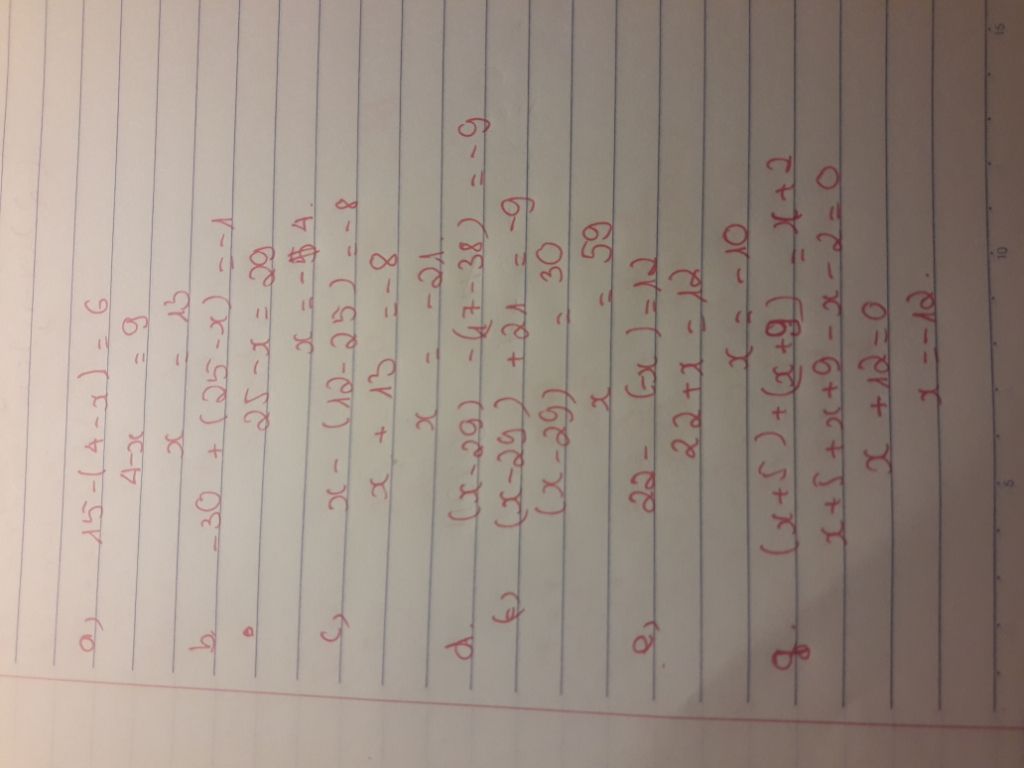 a) 15-(4-x) = 6
4-x = 9
x = 13
b -30 + (25-x) = -1
25-x = 29
x = - 4.
c) x - (12-25) = -8
x + 13 = -8
x = -21
d. (x-29) -(17-38) = -9
(x-29) +21 = -9
(x-29) = 30
x = 59
e) 22- (-x) = 12
22+x = 12
x = -10
g. (x+5) + (x+9) = x+2
x+5+x+9-x-2=0
x +12=0
x=-12.
5
10
15